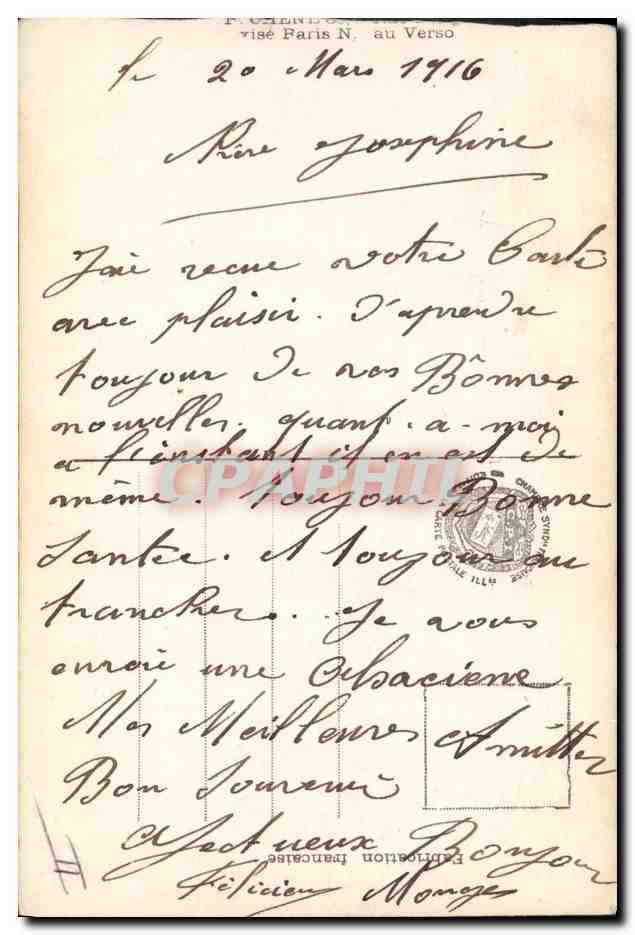 visé Paris N. au Verso
le 20 Mars 1916
Josephine
J'ai recue votre Carte
avec plaisir. D'aprendre
toujour de vos Bônnes
nouvelles. quant. a - moi
a l'instant il en est de
même. toujour Bonne
Santée. et toujour au
trancher... Je vous
envoie une Alsaciene
Mes Meilleures Amitter
Bon Souvenir
Afectueux Bonjour
Félicien
CPAPHIL
CHAMBRE SYNDle FRANÇAISE
CARTE POSTALE ILLée
Fabrication française